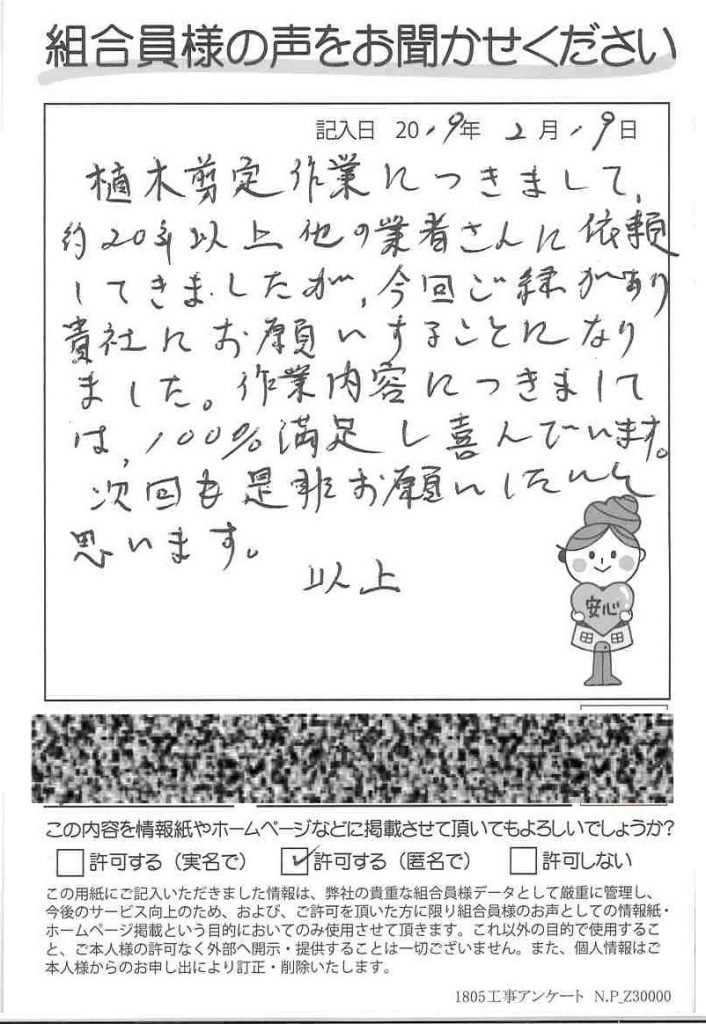 組合員様の声をお聞かせください
記入日 2019年 2月 19日
植木剪定作業につきまして、
約20年以上他の業者さんに依頼
してきましたが、今回ご縁があり
貴社にお願いすることになり
ました。作業内容につきまして
は、100%満足し喜んでいます。
次回も是非お願いしたいと
思います。
以上
安心
この内容を情報紙やホームページなどに掲載させて頂いてもよろしいでしょうか?
許可する(実名で) 許可する(匿名で) 許可しない
この用紙にご記入いただきました情報は、弊社の貴重な組合員様データとして厳重に管理し、
今後のサービス向上のため、および、ご許可を頂いた方に限り組合員様のお声としての情報紙・
ホームページ掲載という目的においてのみ使用させて頂きます。これ以外の目的で使用するこ
と、ご本人様の許可なく外部へ開示・提供することは一切ございません。また、個人情報はご
本人様からのお申し出により訂正・削除いたします。
1805工事アンケート N.P_Z30000